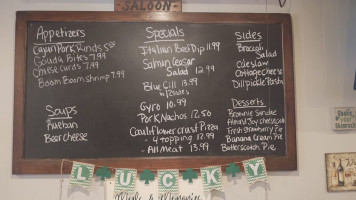 SALOON
Appetizers
Cajun Pork Rinds 5.00
Gouda Bites 7.99
Cheese curds 7.99
Boom Boom shrimp 7.99
Soups
Rueban
Beer Cheese
Specials
Italian Beef Dip 11.99
Salmon Cesar
Salad 12.99
Blue Gill 13.99
Gyro 10.99
Pork Nachos 12.50
Cauliflower crust Pizza
4 topping 12.99
- All Meat 13.99
Sides
Broccoli
Salad
Coleslaw
Cottage Cheese
Dill pickle Pasta
Desserts
Brownie Sundae
Almond Joy cheesecake
Fresh Strawberry Pie
Banana Cream Pie
Butterscotch Pie
LUCKY